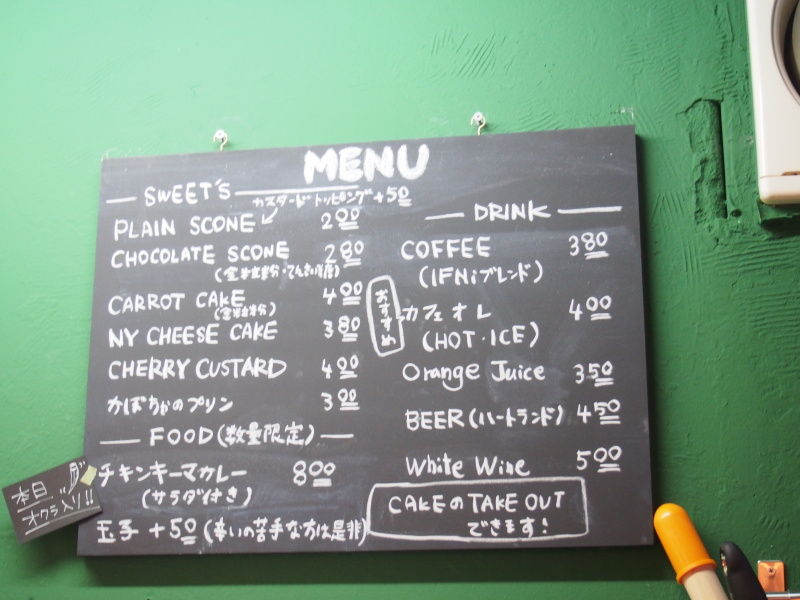 MENU
SWEET'S
カスタードトッピング +50
PLAIN SCONE 200
CHOCOLATE SCONE 280
(全粒粉・てんさい糖)
CARROT CAKE 400
(全粒粉)
NY CHEESE CAKE 380
CHERRY CUSTARD 400
かぼちゃのプリン 300
FOOD(数量限定)
チキンキーマカレー 800
(サラダ付き)
玉子 +50 (辛いの苦手な方は是非)
本日
オクラ入り!!
DRINK
COFFEE 380
(IFNiブレンド)
おすすめ
カフェオレ 400
(HOT・ICE)
Orange Juice 350
BEER(ハートランド) 450
White Wine 500
CAKEのTAKE OUT
できます!